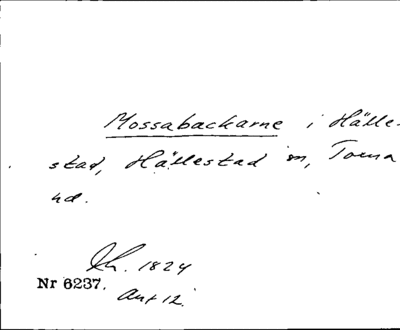 Mossabackarne i Hälle-
stad, Hällestad sn, Torna
hd.
1824
Nr 6237.
Akt 12.